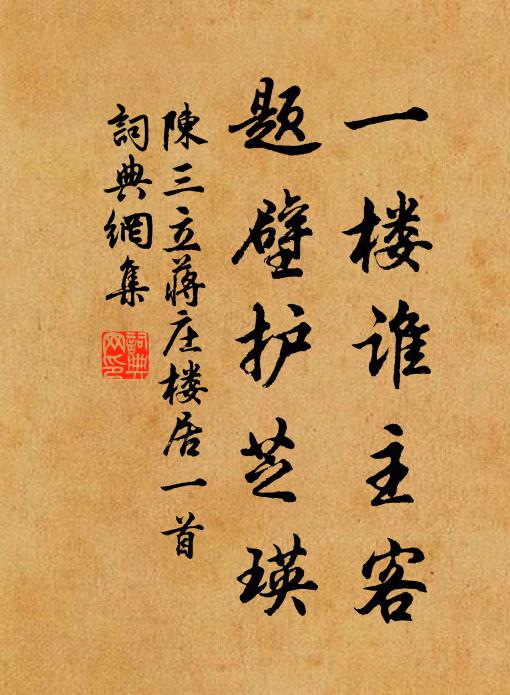 一楼谁主客
题壁护芝瑛
陳三立蒋庄楼居一首
詞典網集
詞典
网印